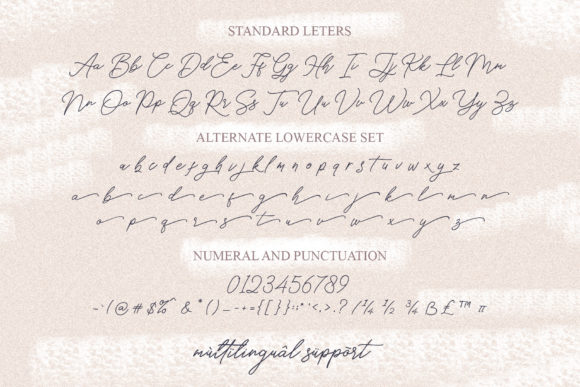 STANDARD LETERS
Aa Bb Cc Dd Ee Ff Gg Hh Ii Jj Kk Ll Mm
Nn Oo Pp Qq Rr Ss Tt Uu Vv Ww Xx Yy Zz
ALTERNATE LOWERCASE SET
a b c d e f g h i j k l m n o p q r s t u v w x y z
a b c d e f g h i j k l m n
o p q r s t u v w x y z
NUMERAL AND PUNCTUATION
0123456789
~`(@ # $%^ & *() _-+={[}]:;"'<,>.? / ¼ ½ ¾ ß £ ™ π
mùltîlingüâl süppört